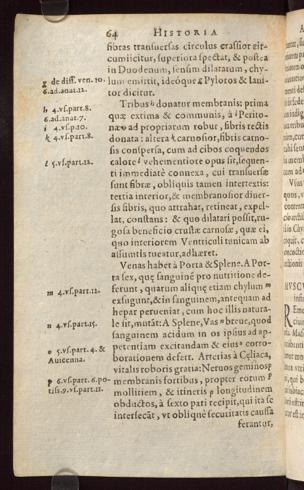 64 HISTORIA
fibras transuersas circulus crassior cir-
cumijcitur, superiora spectat, & postea
in Duodenum, sensim dilatatum, chy-
lum emittit, ideóque g Pyloros & Ianitor
tor dicitur.
Tribus h donatur membranis: prima
quæ extima & communis, à i Perito-
næo ad propriarum robur, fibris rectis
donata: altera k carnosior, fibris carno-
sis conspersa, cum ad cibos coquendos
calore l vehementiore opus sit, sequen-
ti immediatè connexa, cui transuersæ
sunt fibræ, obliquis tamen intertextis:
tertia interior, & membranosior diuer-
sis fibris, quo attrahat, retineat, expel-
lat, constans: & quo dilatari possit, ru-
gosa beneficio crustæ carnosæ, quæ ei,
quo interiorem Ventriculi tunicam ab
assumtis tueatur, adhæret.
Venas habet à Porta & Splene. A Por-
ta sex, quæ sanguinẽ pro nutritione de-
ferunt, quarum aliquæ etiam chylum m
exsugunt, & in sanguinem, antequam ad
hepar perueniat, cum hoc illis natura-
le sit, mutãt: A Splene, Vas n breue, quod
sanguinem acidum in os ipsius ad ap-
petentiam excitandam & eius o corro-
borationem defert. Arterias à Cęliaca,
vitalis roboris gratia: Neruos geminos p
membranis fortibus, propter eorum
mollitiem, & itineris longitudinem
obductos, à sexto pari recipit, qui ita se
intersecãt, vt obliquè securitatis caussa
ferantur,
g de diff. ven. 10.
6. ad. anat. 12.
h 4. vs. part. 8.
6. ad. anat. 7.
i 4. vs. p. 10.
k 4. vs. part. 8.
l 5. vs. part. 12.
m 4. vs. part. 12.
n 4. vs. part. 15.
o 5. vs. part. 4. &
Auicenna.
p 6. vs. part. 6. po-
tiss. 9. vs. part. 11.